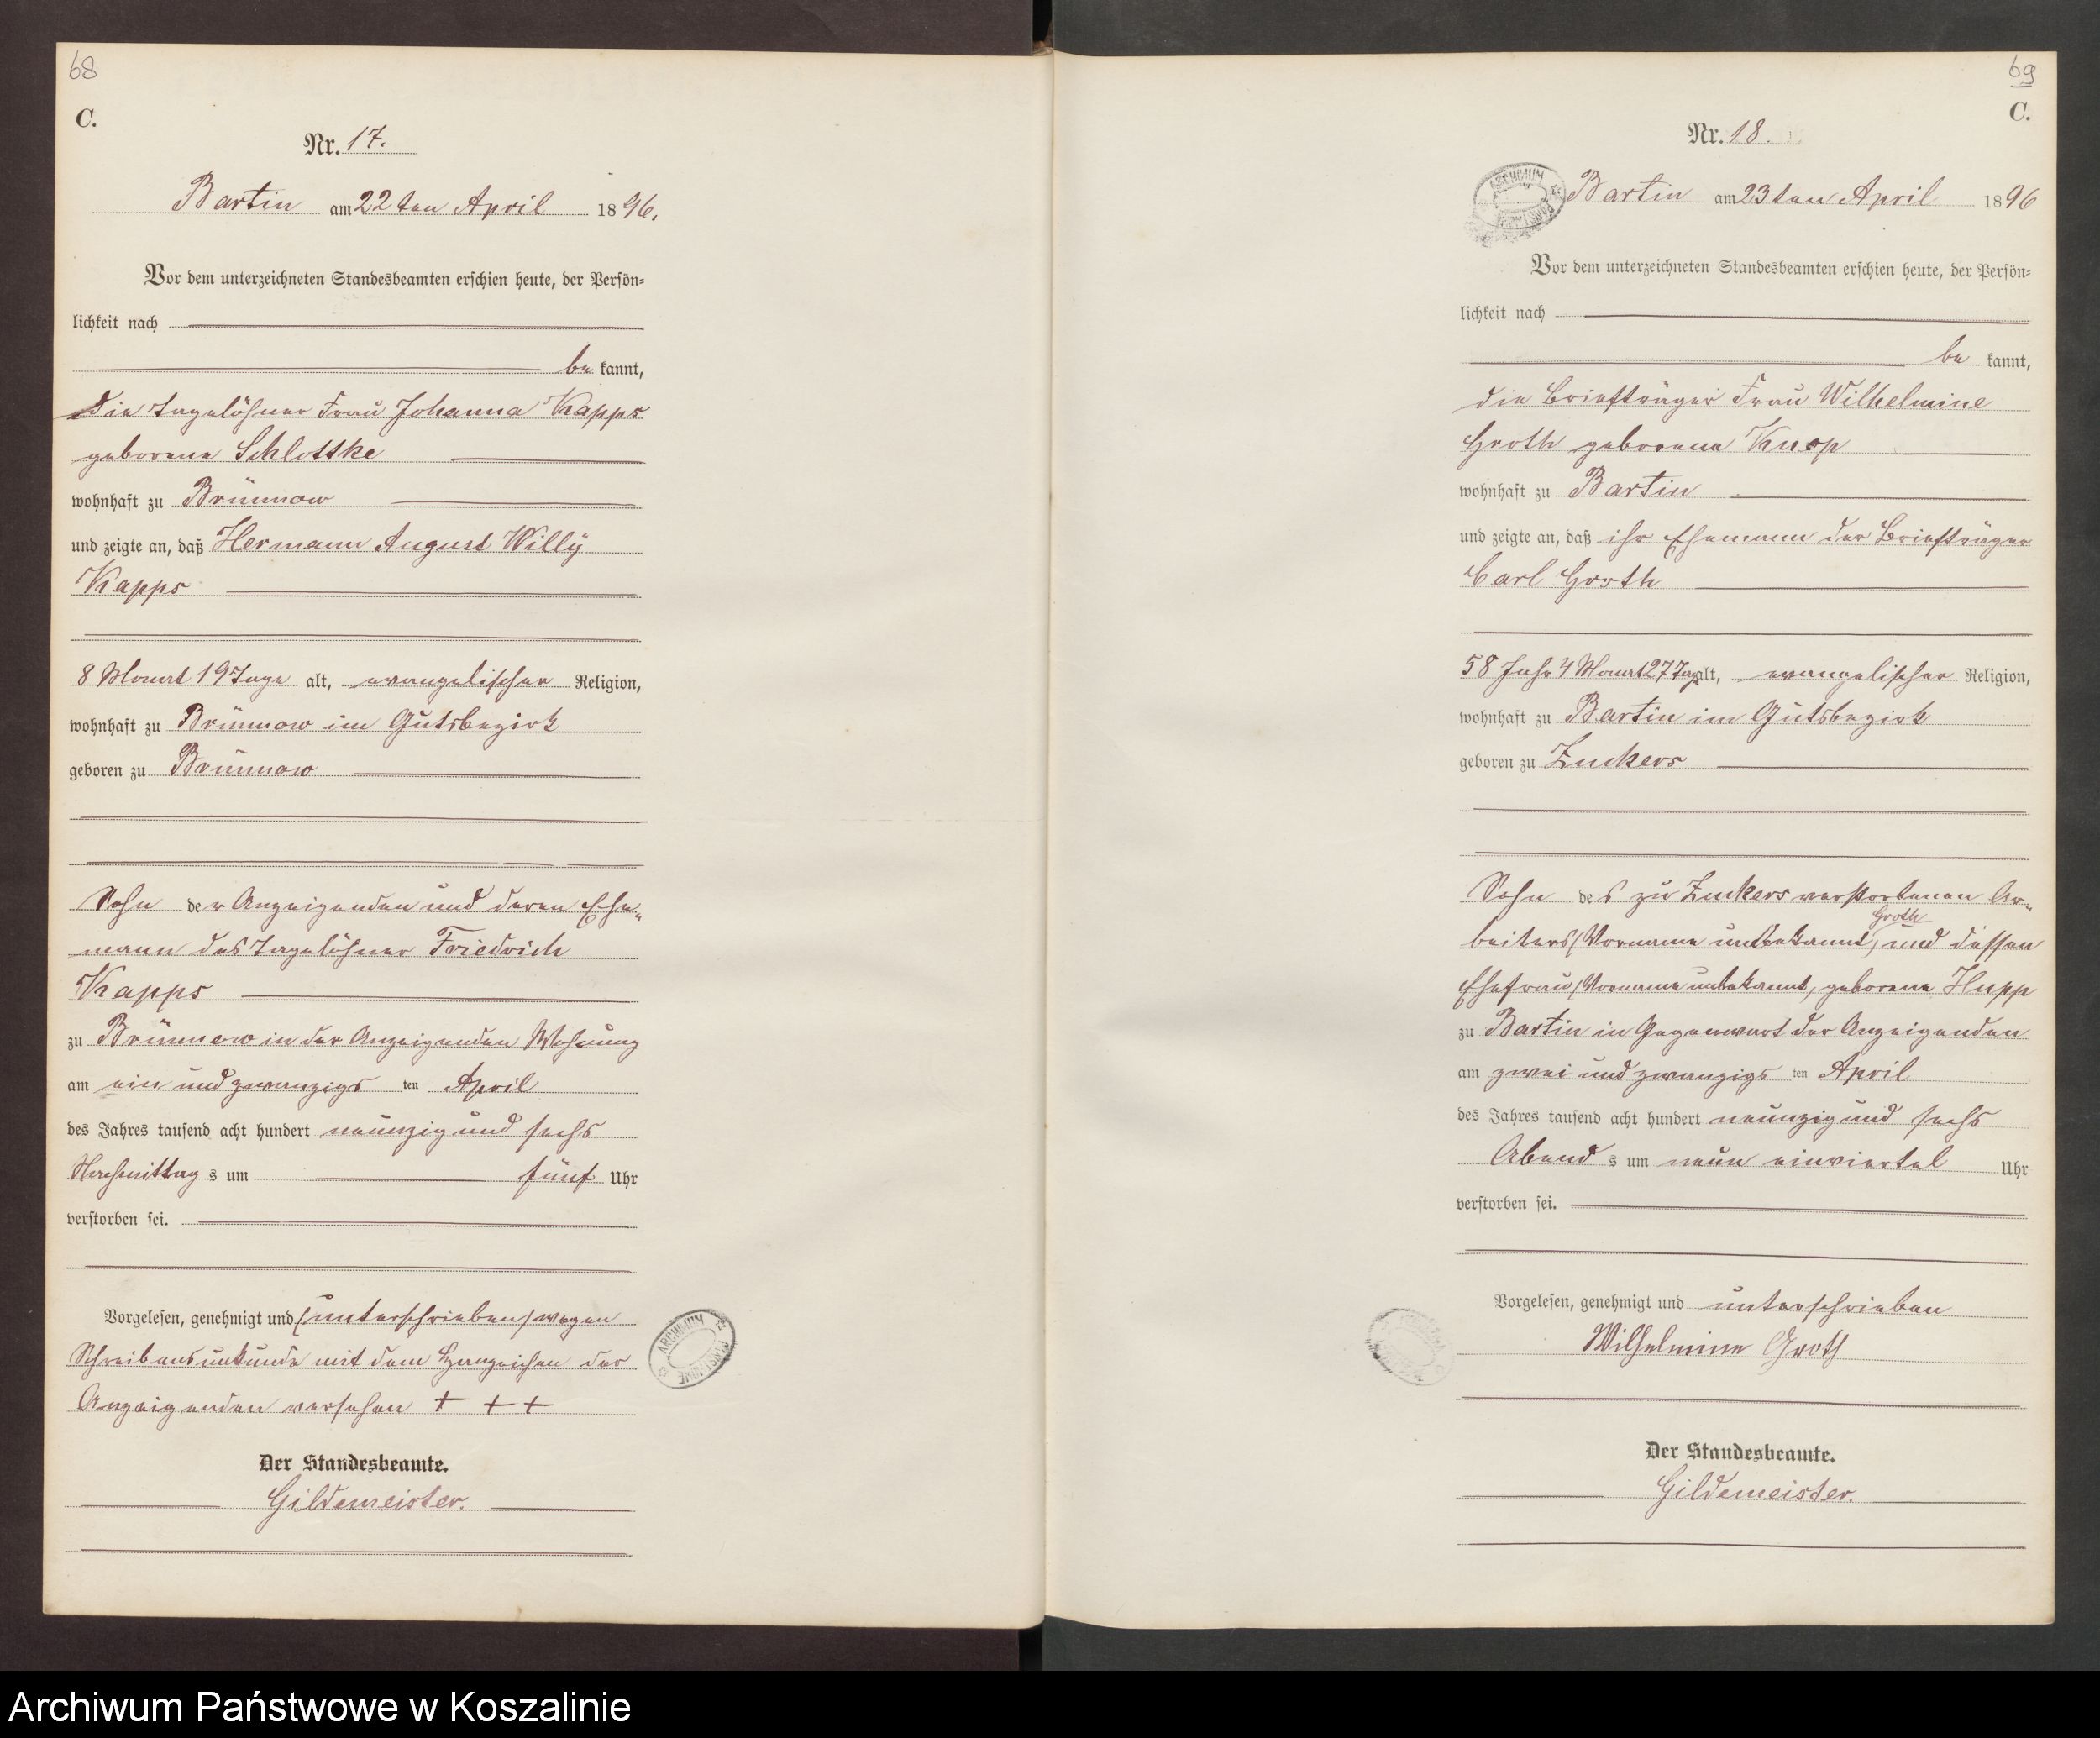 68
C.
Nr. 17.
Bartin am 22ten April 1896.
Vor dem unterzeichneten Standesbeamten erschien heute, der Persön-
lichkeit nach
be kannt,
die Tagelöhner Frau Johanna Kapps
geborene Schlottke
wohnhaft zu Brünnow
und zeigte an, daß Hermann August Willy
Kapps
8 Monat 19 Tage alt, evangelischer Religion,
wohnhaft zu Brünnow im Gutsbezirk
geboren zu Brünnow
Sohn der Anzeigenden und deren Ehe-
mann des Tagelöhner Friedrich
Kapps
zu Brünnow in der Anzeigenden Wohnung
am ein und zwanzigs ten April
des Jahres tausend acht hundert neunzig und sechs
Nachmittag s um fünf Uhr
verstorben sei.
Vorgelesen, genehmigt und (unterschrieben) wegen
Schreibensunkunde mit dem Handzeichen der
Anzeigenden versehen + + +
Der Standesbeamte.
Gildemeister.
ARCHIWUM PAŃSTWOWE
69
C.
Nr. 18.
ARCHIWUM PAŃSTWOWE
Bartin am 23ten April 1896
Vor dem unterzeichneten Standesbeamten erschien heute, der Persön-
lichkeit nach
be kannt,
die Briefträger Frau Wilhelmine
Groth geborene Knop
wohnhaft zu Bartin
und zeigte an, daß ihr Ehemann der Briefträger
Carl Groth
58 Jahr 4 Monat 27 Tag alt, evangelischer Religion,
wohnhaft zu Bartin im Gutsbezirk
geboren zu Zuckers
Sohn des zu Zuckers verstorbenen Ar-
Groth
beiters (Vorname unbekannt) und dessen
Ehefrau (Vorname unbekannt, geborene Hupp
zu Bartin in Gegenwart der Anzeigenden
am zwei und zwanzigs ten April
des Jahres tausend acht hundert neunzig und sechs
Abend s um neun einviertel Uhr
verstorben sei.
Vorgelesen, genehmigt und unterschrieben
Wilhelmine Groth
Der Standesbeamte.
Gildemeister.
Archiwum Państwowe w Koszalinie